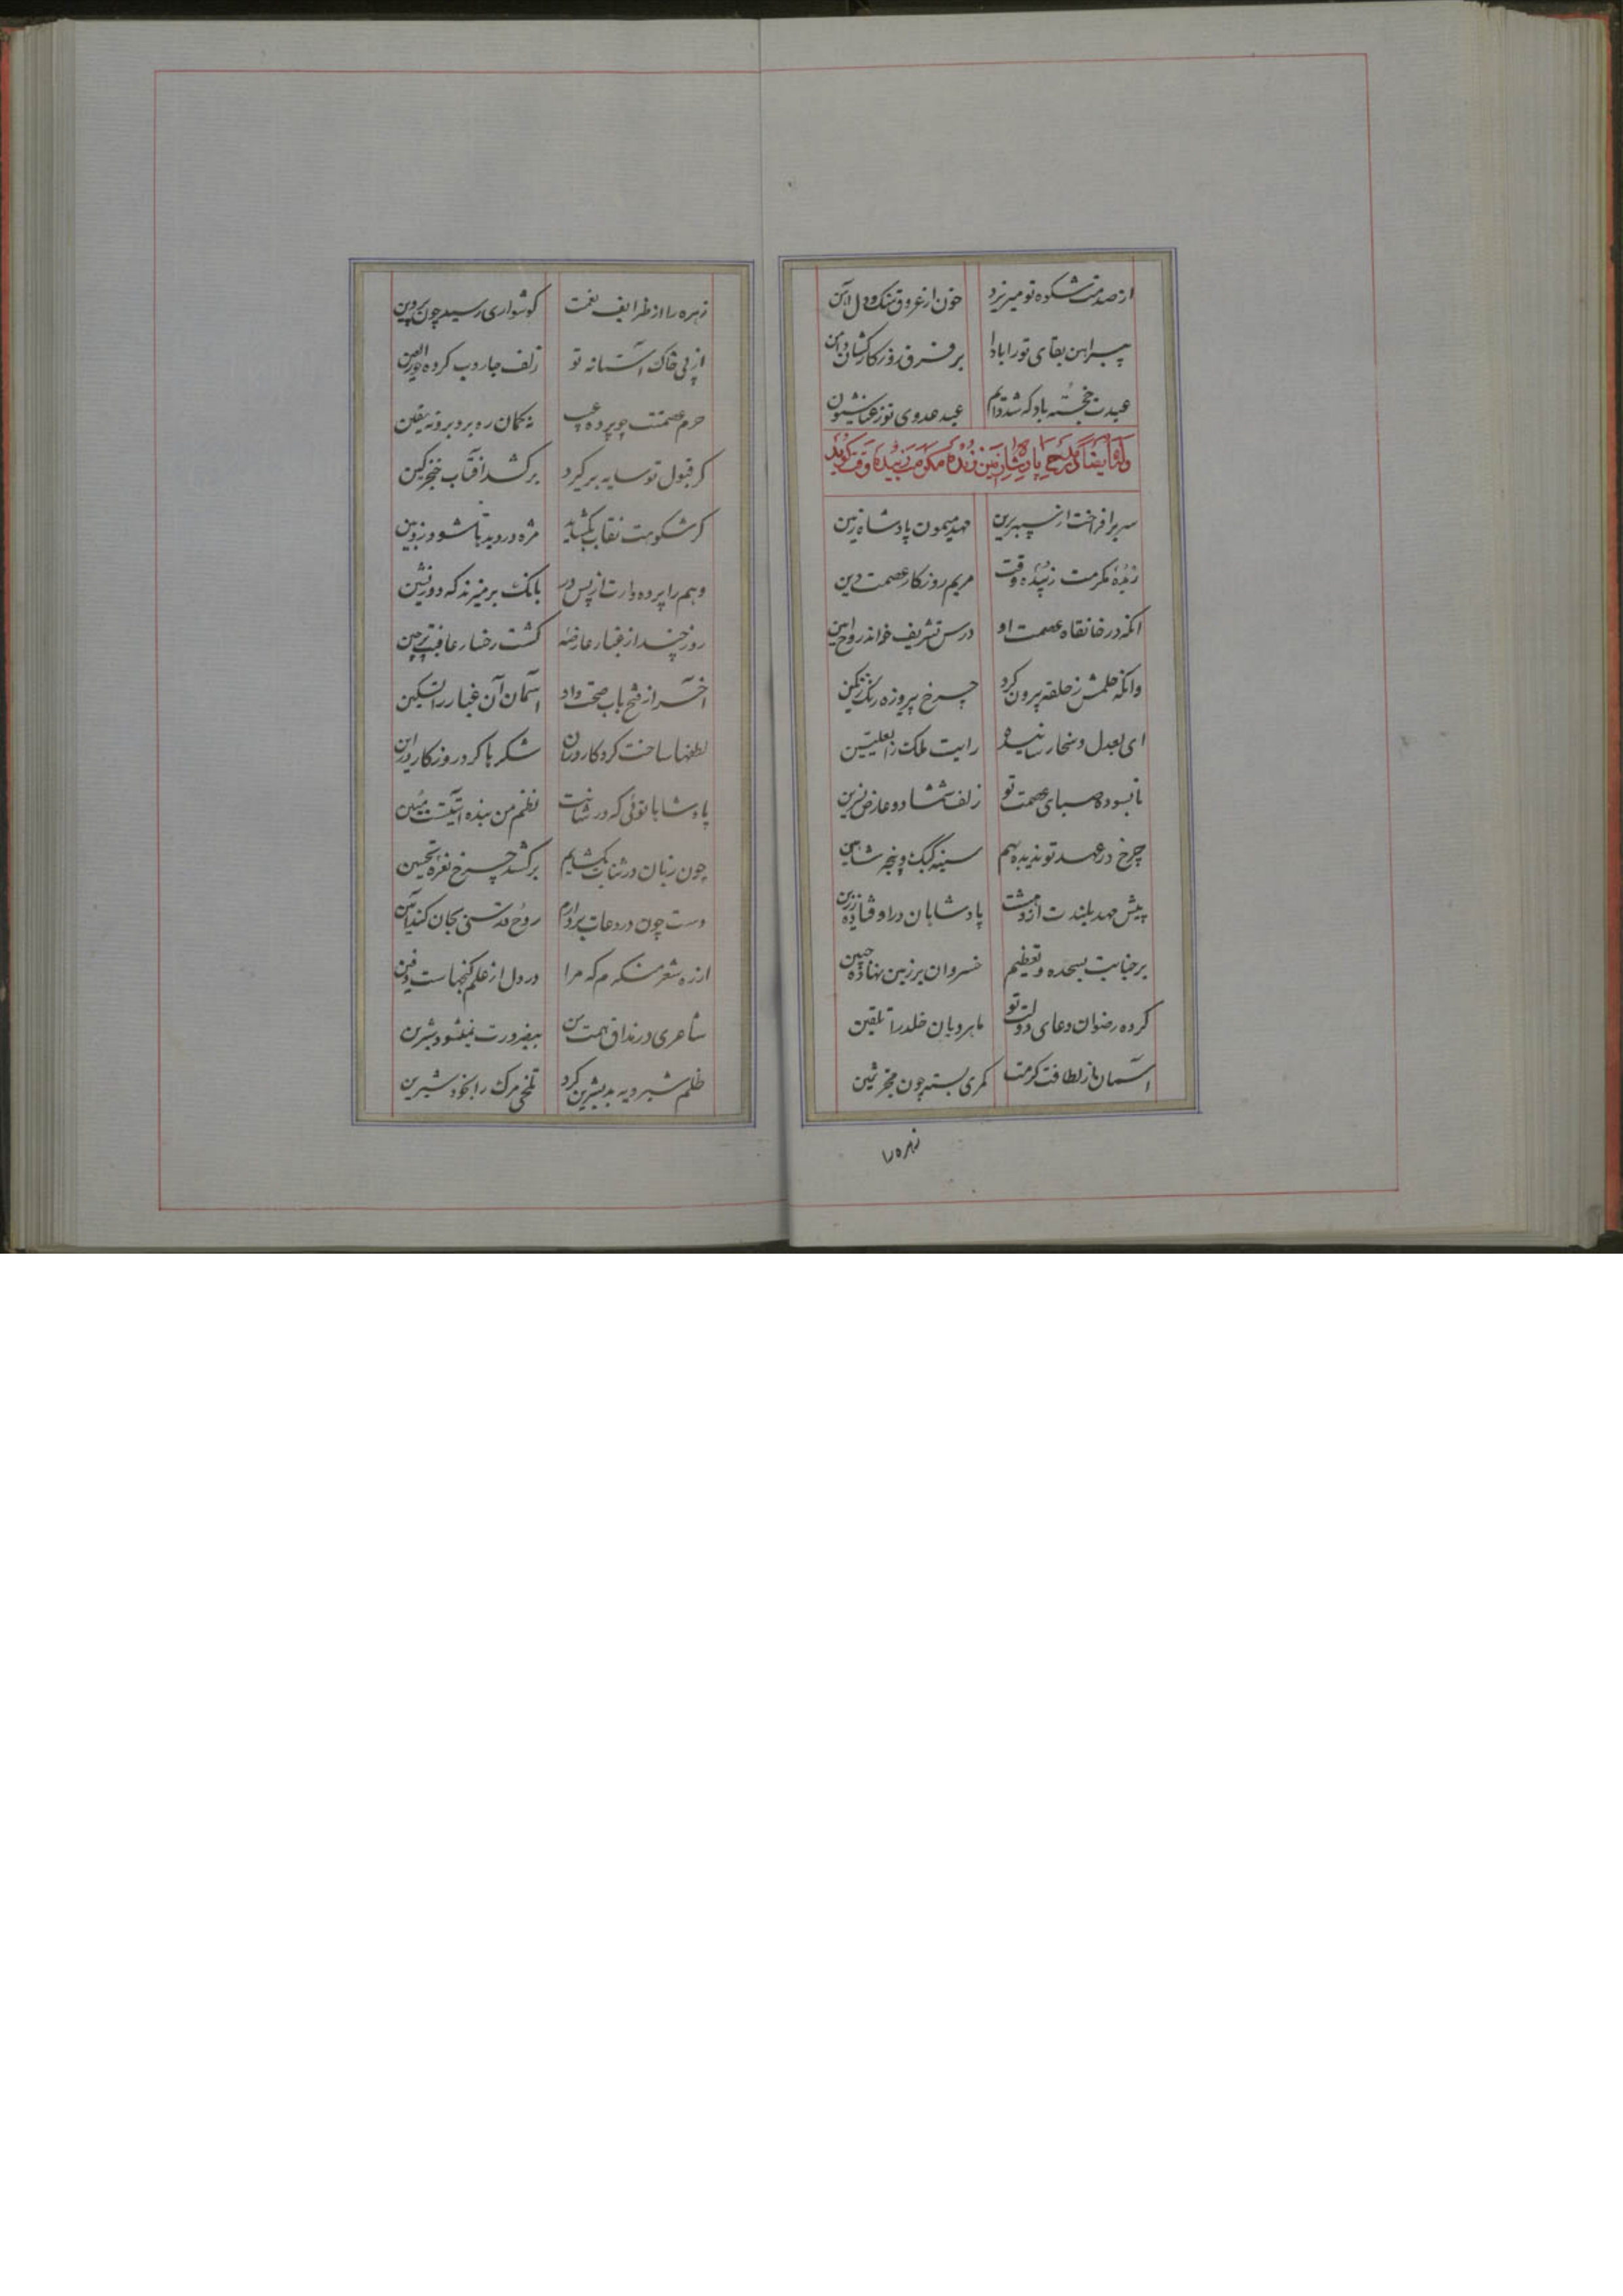 از صدمت شکوه تو میریزد خون از عروق سنک و دل آهن
پیراهن بقای تو را بادا بر فرق روزکار کشان دامن
عیدت خجسته باد که شد دایم عید عدوی تو ز عنا شیون
وله ایضا در مدح پادشاه زمین زبده مکرمت زبیده وقت کوید
سر برافراخت از سپهر برین مهد میمون پادشاه زمین
زبدهٔ مکرمت زبیدهٔ وقت مریم روزکار عصمت دین
انکه در خانقاه عصمت او درس تشریف خواند روح امین
وانکه حلمش ز حلقه بیرون کرد چرخ پیروزه رنک را
ای بعدل و سخا رسانیده رایت ملک را بعلیین
نابسوده صبای عصمت تو زلف شمشاد و عارض نسرین
چرخ در عهد تو ندیده بهم سینه کبک و پنجه شاهین
پیش مهد بلندت از دهشت پادشاهان در اوفتاده ز زین
بر جنابت بسجده و تعظیم خسروان بر زمین نهاده جبین
کرده رضوان دعای دولت تو ماهرویان خلد را تلقین
آسمان از لطافت کرمت کمری بسته چون مجره ثمین
زهره را
زهره را از ظرایف نعمت کوشواری رسید چون پروین
از پی خاک آستانه تو زلف جاروب کرده حور العین
حرم عصمتت چو پرده غیب نه کمان ره برد برو نه یقین
کر قبول تو سایه بر کیرد برکشد آفتاب خنجر کین
کر شکوهت نقاب بکشاید مژه در دیدها شود زوبین
وهم را پرده دارت از پس در بانک برمیزند که دور نشین
روز چند از غبار عارضهٔ کشت رخسار عافیت پرچین
آخر از فتح باب صحت داد آسمان آن غبار را تسکین
لطفها ساخت کردکار در آن شکرها کرد روزکار در این
پادشاها توئی که در شانت نظم من بنده آیتیست مبین
چون زبان در ثنات بکشایم برکشد چرخ نعرهٔ تحسین
دست چون در دعات بردارم روح قدسی بجان کند آمین
از ره شعر منکرم که مرا در دل از علم کنجهاست دفین
شاعری در مذاق همت من بیضرورت نمیشود شیرین
ظلم شیرویه بد بشیرین کرد تلخی مرک را بخود شیرین